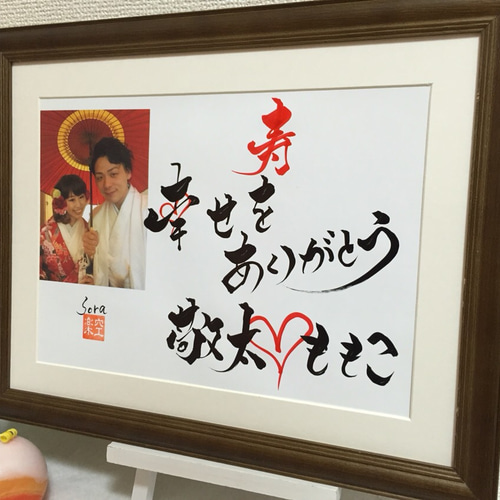 寿
幸せを
ありがとう
敬太♡ももこ
Sora
空楽